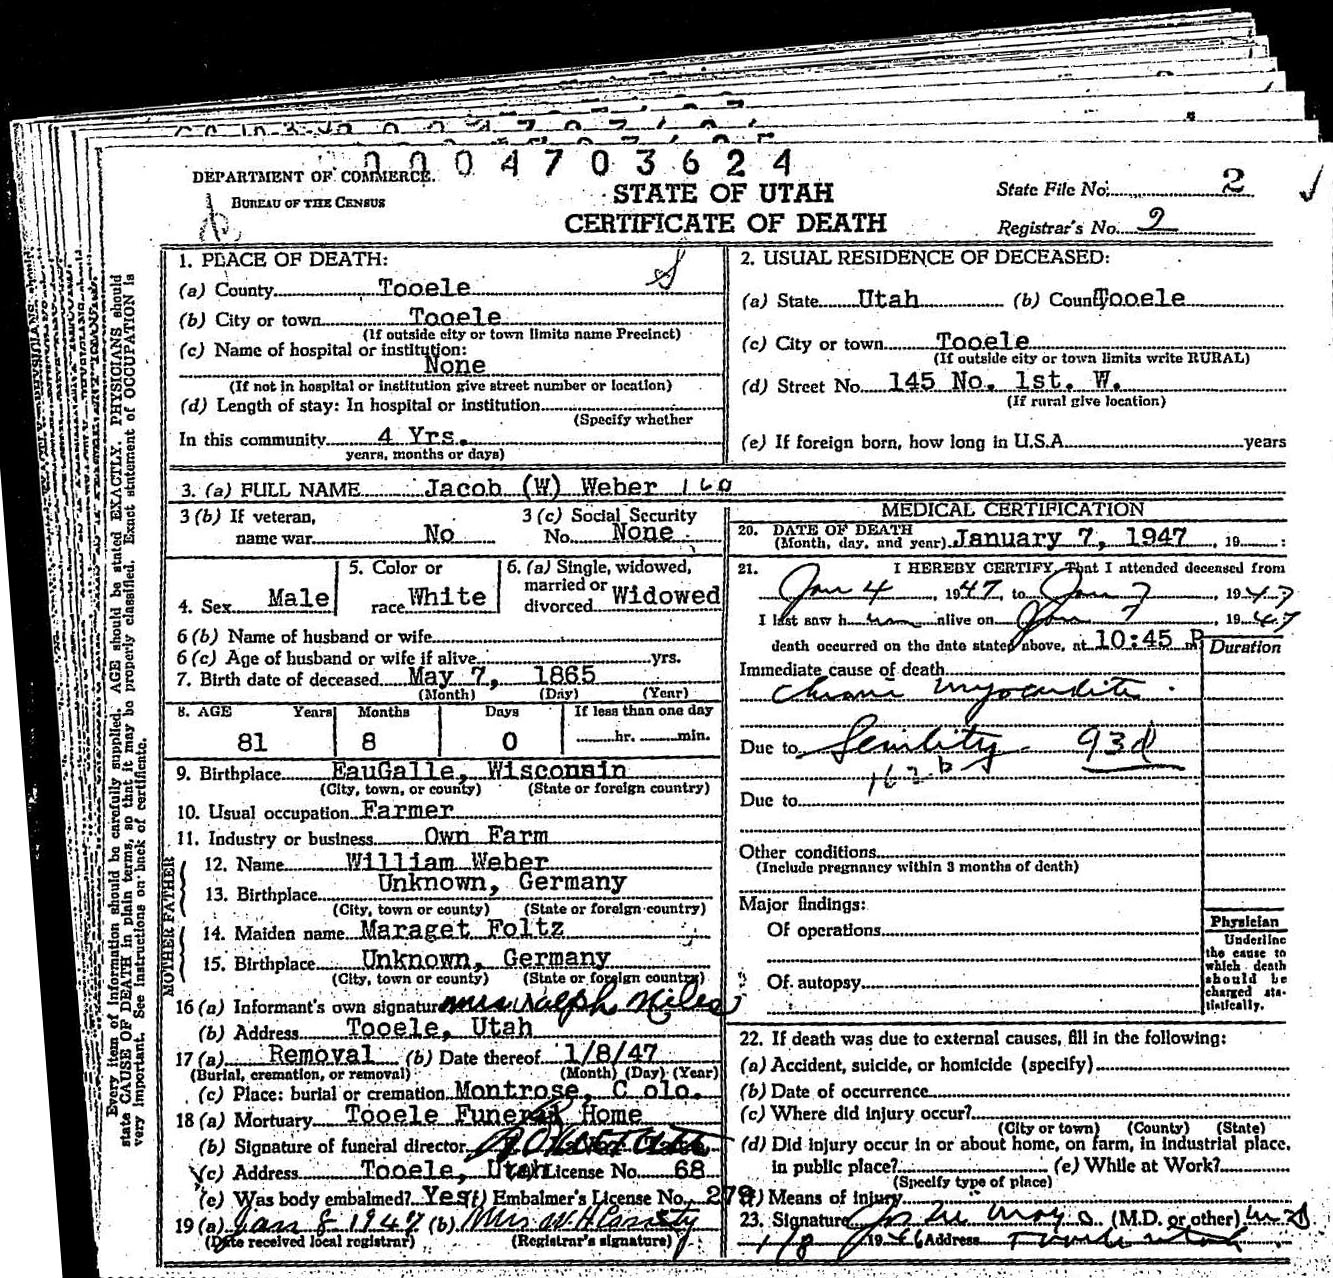 0004703624
DEPARTMENT OF COMMERCE.
BUREAU OF THE CENSUS
STATE OF UTAH
CERTIFICATE OF DEATH
State File No. 2
Registrar's No. 2
Every item of information should be carefully supplied. AGE should be stated EXACTLY. PHYSICIANS should
state CAUSE OF DEATH in plain terms, so that it may be properly classified. Exact statement of OCCUPATION is
very important. See instructions on back of certificate.
1. PLACE OF DEATH:
(a) County Tooele
(b) City or town Tooele
(If outside city or town limits name Precinct)
(c) Name of hospital or institution:
None
(If not in hospital or institution give street number or location)
(d) Length of stay: In hospital or institution
(Specify whether
In this community 4 Yrs.
years, months or days)
2. USUAL RESIDENCE OF DECEASED:
(a) State Utah (b) County Tooele
(c) City or town Tooele
(If outside city or town limits write RURAL)
(d) Street No. 145 No. 1st. W.
(If rural give location)
(e) If foreign born, how long in U.S.A. years
3. (a) FULL NAME Jacob (W) Weber 160
3 (b) If veteran,
name war No
3 (c) Social Security
No. None
4. Sex Male
5. Color or
race White
6. (a) Single, widowed,
married or
divorced Widowed
6 (b) Name of husband or wife
6 (c) Age of husband or wife if alive yrs.
7. Birth date of deceased May 7, 1865
(Month) (Day) (Year)
8. AGE Years Months Days If less than one day
81 8 0 hr. min.
9. Birthplace EauGalle, Wisconsin
(City, town, or county) (State or foreign country)
10. Usual occupation Farmer
11. Industry or business Own Farm
FATHER
12. Name William Weber
13. Birthplace Unknown, Germany
(City, town or county) (State or foreign country)
MOTHER
14. Maiden name Maraget Foltz
15. Birthplace Unknown, Germany
(City, town or county) (State or foreign country)
16 (a) Informant's own signature Mrs Ralph Niles
(b) Address Tooele, Utah
17 (a) Removal (b) Date thereof 1/8/47
(Burial, cremation, or removal) (Month) (Day) (Year)
(c) Place: burial or cremation Montrose, C olo.
18 (a) Mortuary Tooele Funeral Home
(b) Signature of funeral director
(c) Address Tooele, Utah License No. 68
(e) Was body embalmed? Yes (f) Embalmer's License No. 279
19 (a) Jan 8 1947 (b) Mrs W.H.
(Date received local registrar) (Registrar's signature)
MEDICAL CERTIFICATION
20. DATE OF DEATH
(Month, day, and year) January 7, 1947 , 19 :
21. I HEREBY CERTIFY, That I attended deceased from
Jan 4 , 1947, to Jan 7 , 1947
I last saw him alive on Jan 7 , 1947
death occurred on the date stated above, at 10:45 P m
Duration
Immediate cause of death
Chronic myocarditis.
Due to Senility 93d
162b
Due to
Other conditions
(Include pregnancy within 3 months of death)
Major findings:
Of operations
Of autopsy
Physician
Underline
the cause to
which death
should be
charged sta-
tistically.
22. If death was due to external causes, fill in the following:
(a) Accident, suicide, or homicide (specify)
(b) Date of occurrence
(c) Where did injury occur?
(City or town) (County) (State)
(d) Did injury occur in or about home, on farm, in industrial place,
in public place? (e) While at Work?
(Specify type of place)
(f) Means of injury
23. Signature (M.D. or other) M.D
1/8 1946 Address Tooele Utah